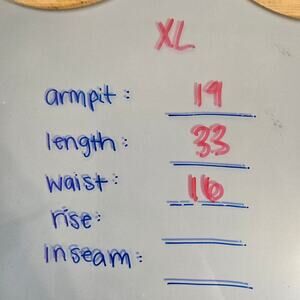 XL
armpit: 19
length: 33
waist: 16
rise:
inseam: